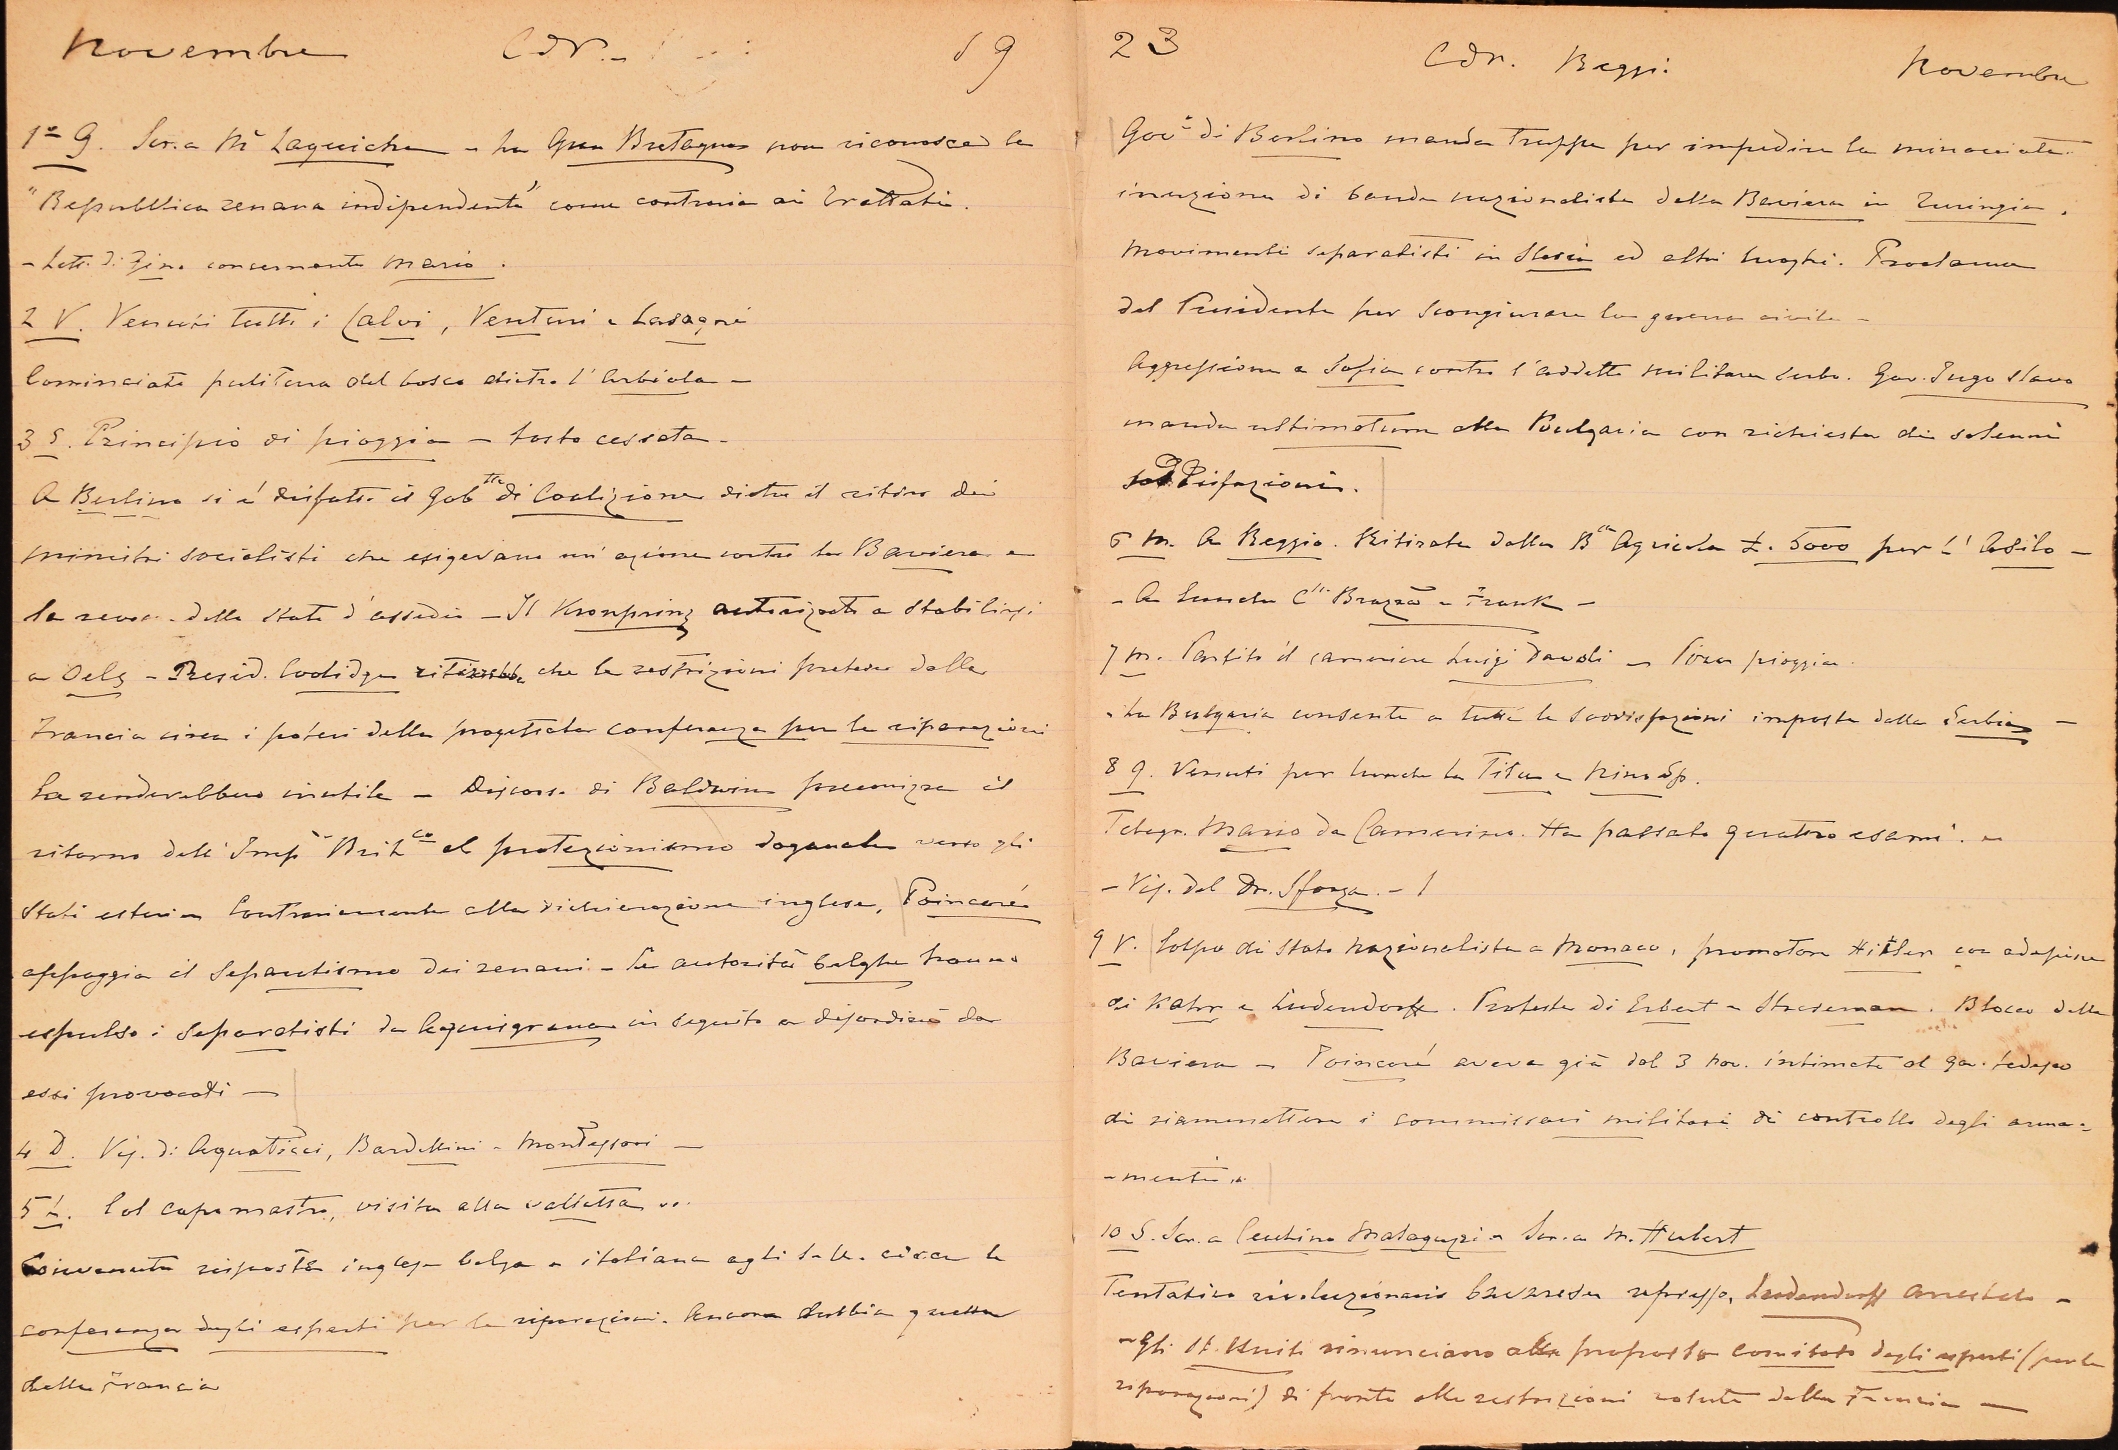 Novembre CdR.- 19
1º G. Scr. a Mr Laguiche - La Gran Bretagna non riconosce la
"Repubblica renana indipendente" come contraria ai trattati.
- Lett. di Gino concernente Mario.
2 V. Venuti tutti i Calvi, Venturi e Lasagni
Cominciata pulitura del bosco dietro l'
3 S. Principio di pioggia - tosto cessata -
A Berlino si è disfatto il Gabtto di Coalizione dietro il ritiro dei
ministri socialisti che esigevano un'azione contro la Baviera e
la revoc. dello stato d'assedio - Il Kronprinz autorizzato a stabilirsi
a Oels - Presid. Coolidge che le restrizioni pretese dalla
Francia circa i poteri della progettata conferenza per le riparazioni
la renderebbero inutile - Discorso di Baldwin preconizza il
ritorno dell'Impº Britco al protezionismo doganale verso gli
Stati esteri - Contrariamente alla dichiarazione inglese, Poincaré
appoggia il separatismo dei renani - Le autorità belghe hanno
espulso i separatisti da Aquisgrana in seguito a disordini da
essi provocati -
4 D. Vis. di Aguatisci, Bardellini e Montessori -
5 L. Col capo mastro, visita alla valletta
Convenuta risposta inglese belga e italiana agli S. U. circa la
conferenza degli esperti per le riparazioni. Ancora dubbia quella
della Francia
23 CdR. Reggi. Novembre
Govº di Berlino manda truppe per impedire la minacciata
invazione di bande nazionaliste della Baviera in Turingia.
Movimenti separatisti in Slesia ed altri luoghi. Proclama
del Presidente per scongiurare la guerra civile -
Aggressione a Sofia contro l'addetto militare serbo. Gov. Jugo slavo
manda ultimatum alla Bulgaria con richiesta di solenni
soddisfazioni.
6 M. A Reggio. Ritirate dalla Bca Agricola £. 5000 per l'Asilo -
- A lunch Cte Brazzà e Frank -
7 M. Partito il cameriere Luigi Davoli - Poca pioggia.
- La Bulgaria consente a tutte le soddisfazioni imposte dalla Serbia -
8 G. Venuti per lunch la Titu e Nino Sp.
Telegr. Mario da Camerino. Ha passato quattro esami.
- Vis. del Dr. Sforza. -
9 V. Colpo di stato nazionalista a Monaco, promotore Hitler con adesione
di Kahr e Ludendorff. Proteste di Erbert e Streseman. Blocco della
Baviera - Poincaré aveva già dal 3 nov. intimato al gov. tedesco
di riammettere i commissari militari di controllo degli arma=
-menti.
10 S. Scr. a Cecchino Malaguzzi e Scr. a M. Hubert
Tentativo rivoluzionario bavarese represso, Ludendorff arrestato -
- Gli St. Uniti rinunciano alla proposta comitato degli esperti (per le
riparazioni) di fronte alle restrizioni volute dalla Francia -